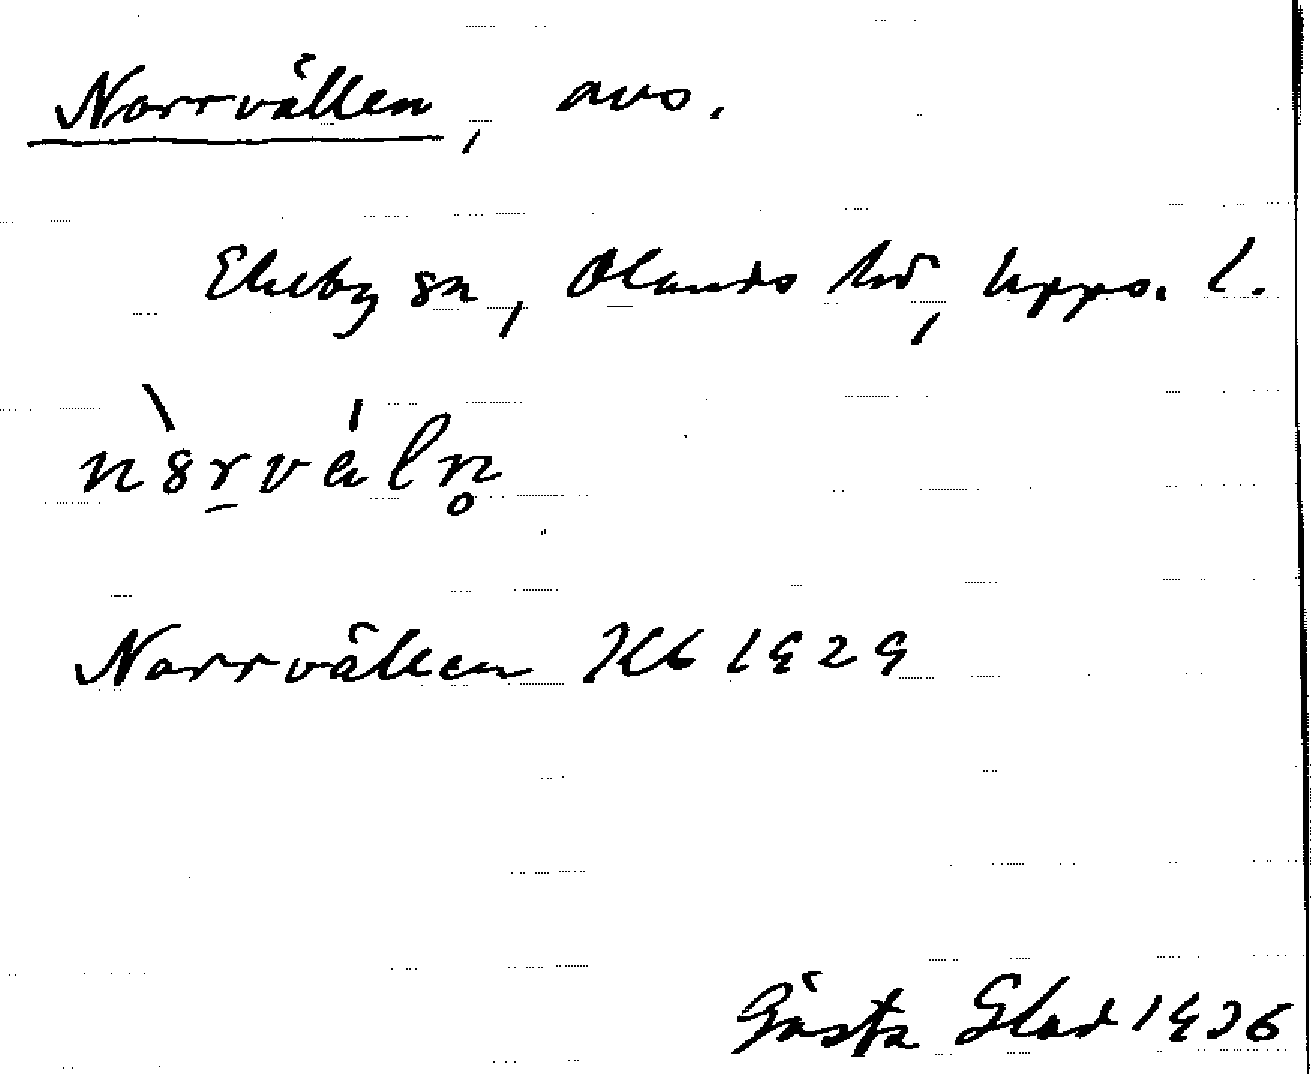 Norrvällen, avs.
Ekeby sn, Olands hd, Upps. l.
Norrvällen Kb 1929
Gösta Glad 1936